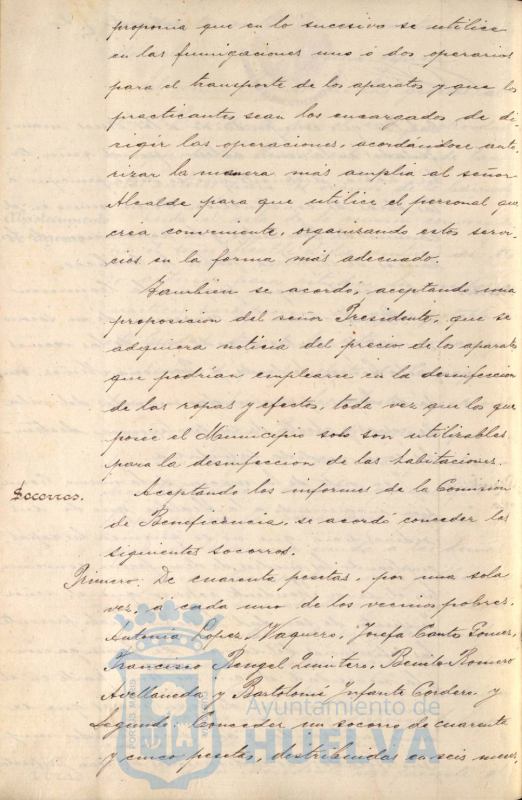 proponia que en lo sucesivo se utilice
en las fumigaciones uno ó dos operarios
para el transporte de los aparatos y que los
practicantes sean los encargados de di-
rigir las operaciones, acordándose auto-
rizar la manera más amplia al señor
Alcalde para que utilice el personal que
crea conveniente, organizando estos servi-
cios en la forma más adecuado.
Tambien se acordó, aceptando una
proposicion del señor Presidente, que se
adquiera noticia del precio de los aparatos
que podrían emplearse en la desinfeccion
de las ropas y efectos, toda vez que los que
posee el Municipio solo son utilizables
para la desinfeccion de las habitaciones.
Socorros.
Aceptando los informes de la Comision
de Beneficencia, se acordó conceder los
siguientes socorros.
Primero: De cuarenta pesetas, por una sola
vez, á cada uno de los vecinos pobres,
Antonia Lopez Vaquero, Josefa Canto Gomez,
Francisco Rengel Quintero, Benito Romero
Avellaneda y Bartolomé Infante Cordero. y
Segundo: Conceder un socorro de cuarenta
y cinco pesetas, distribuidas en seis meses,
Ayuntamiento de
HUELVA